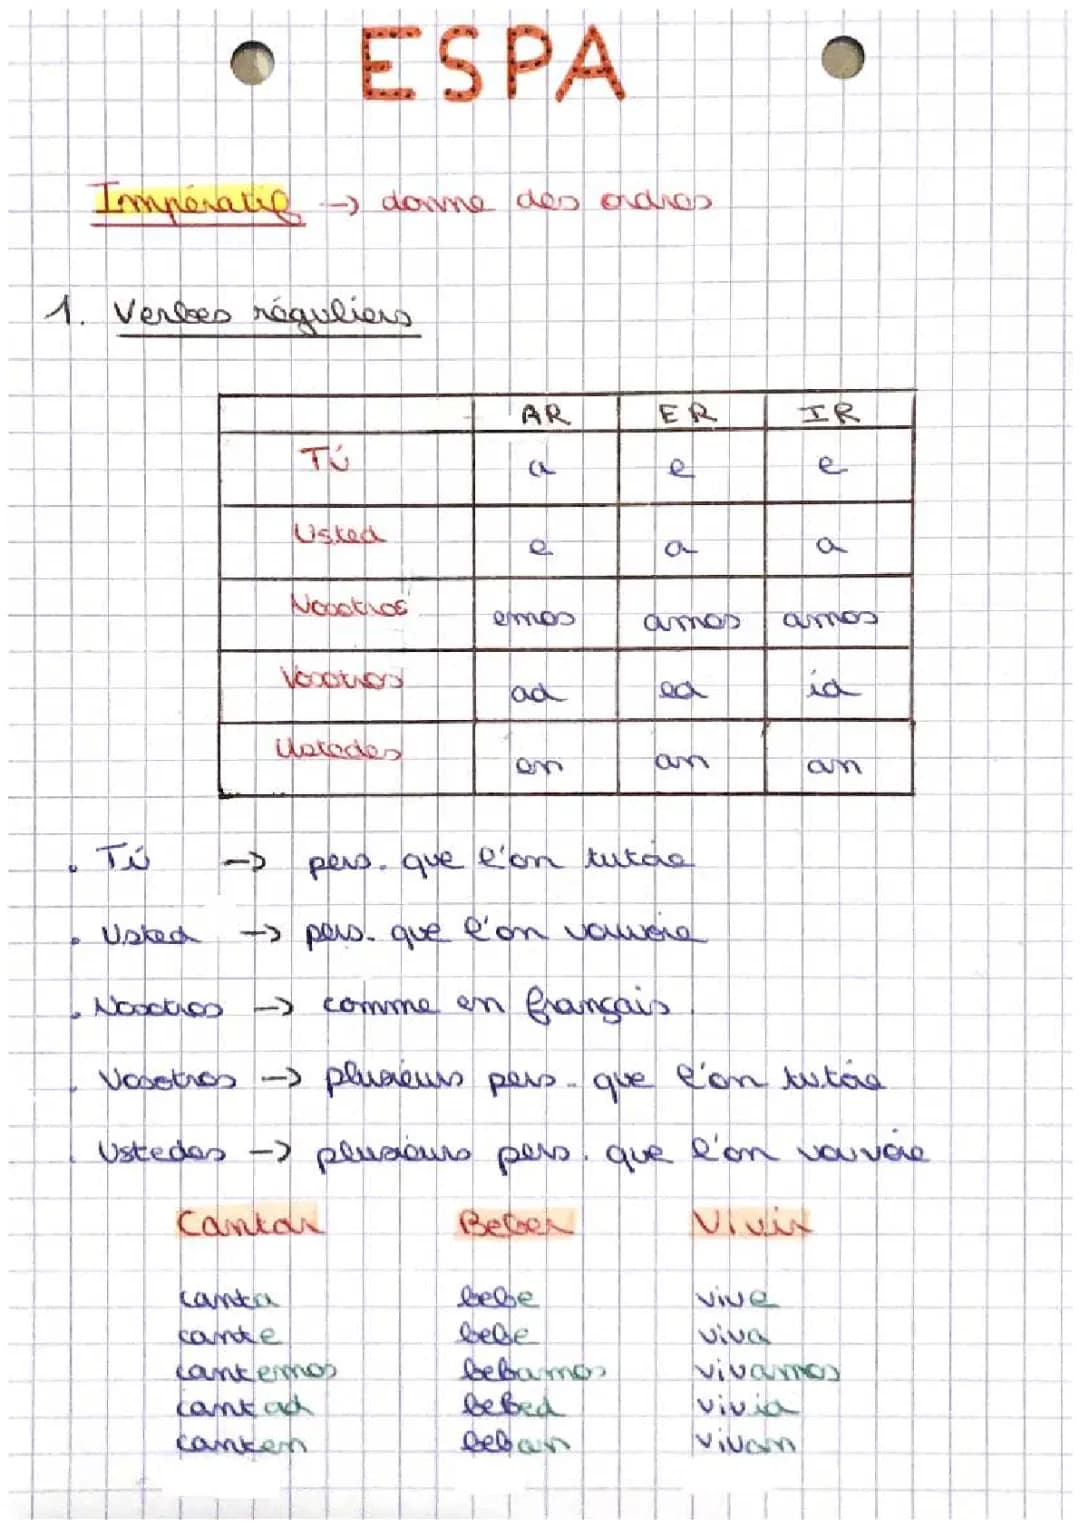 ESPA
Impératif → donne des ordres
1. Verbes réguliers
AR ER IR
Tú a e e
Usted e a a
Nosotros emos amos amos
Vosotros ad ed id
Ustedes en an an
. Tú → pers. que l'on tutoie
. Usted → pers. que l'on vouvoie
. Nosotros → comme en français.
. Vosotros → plusieurs pers. que l'on tutoie
. Ustedes → plusieurs pers. que l'on vouvoie
Cantar Beber Vivir
canta bebe vive
cante bebe viva
cantemos bebamos vivamos
cantad bebed vivid
canten beban vivan